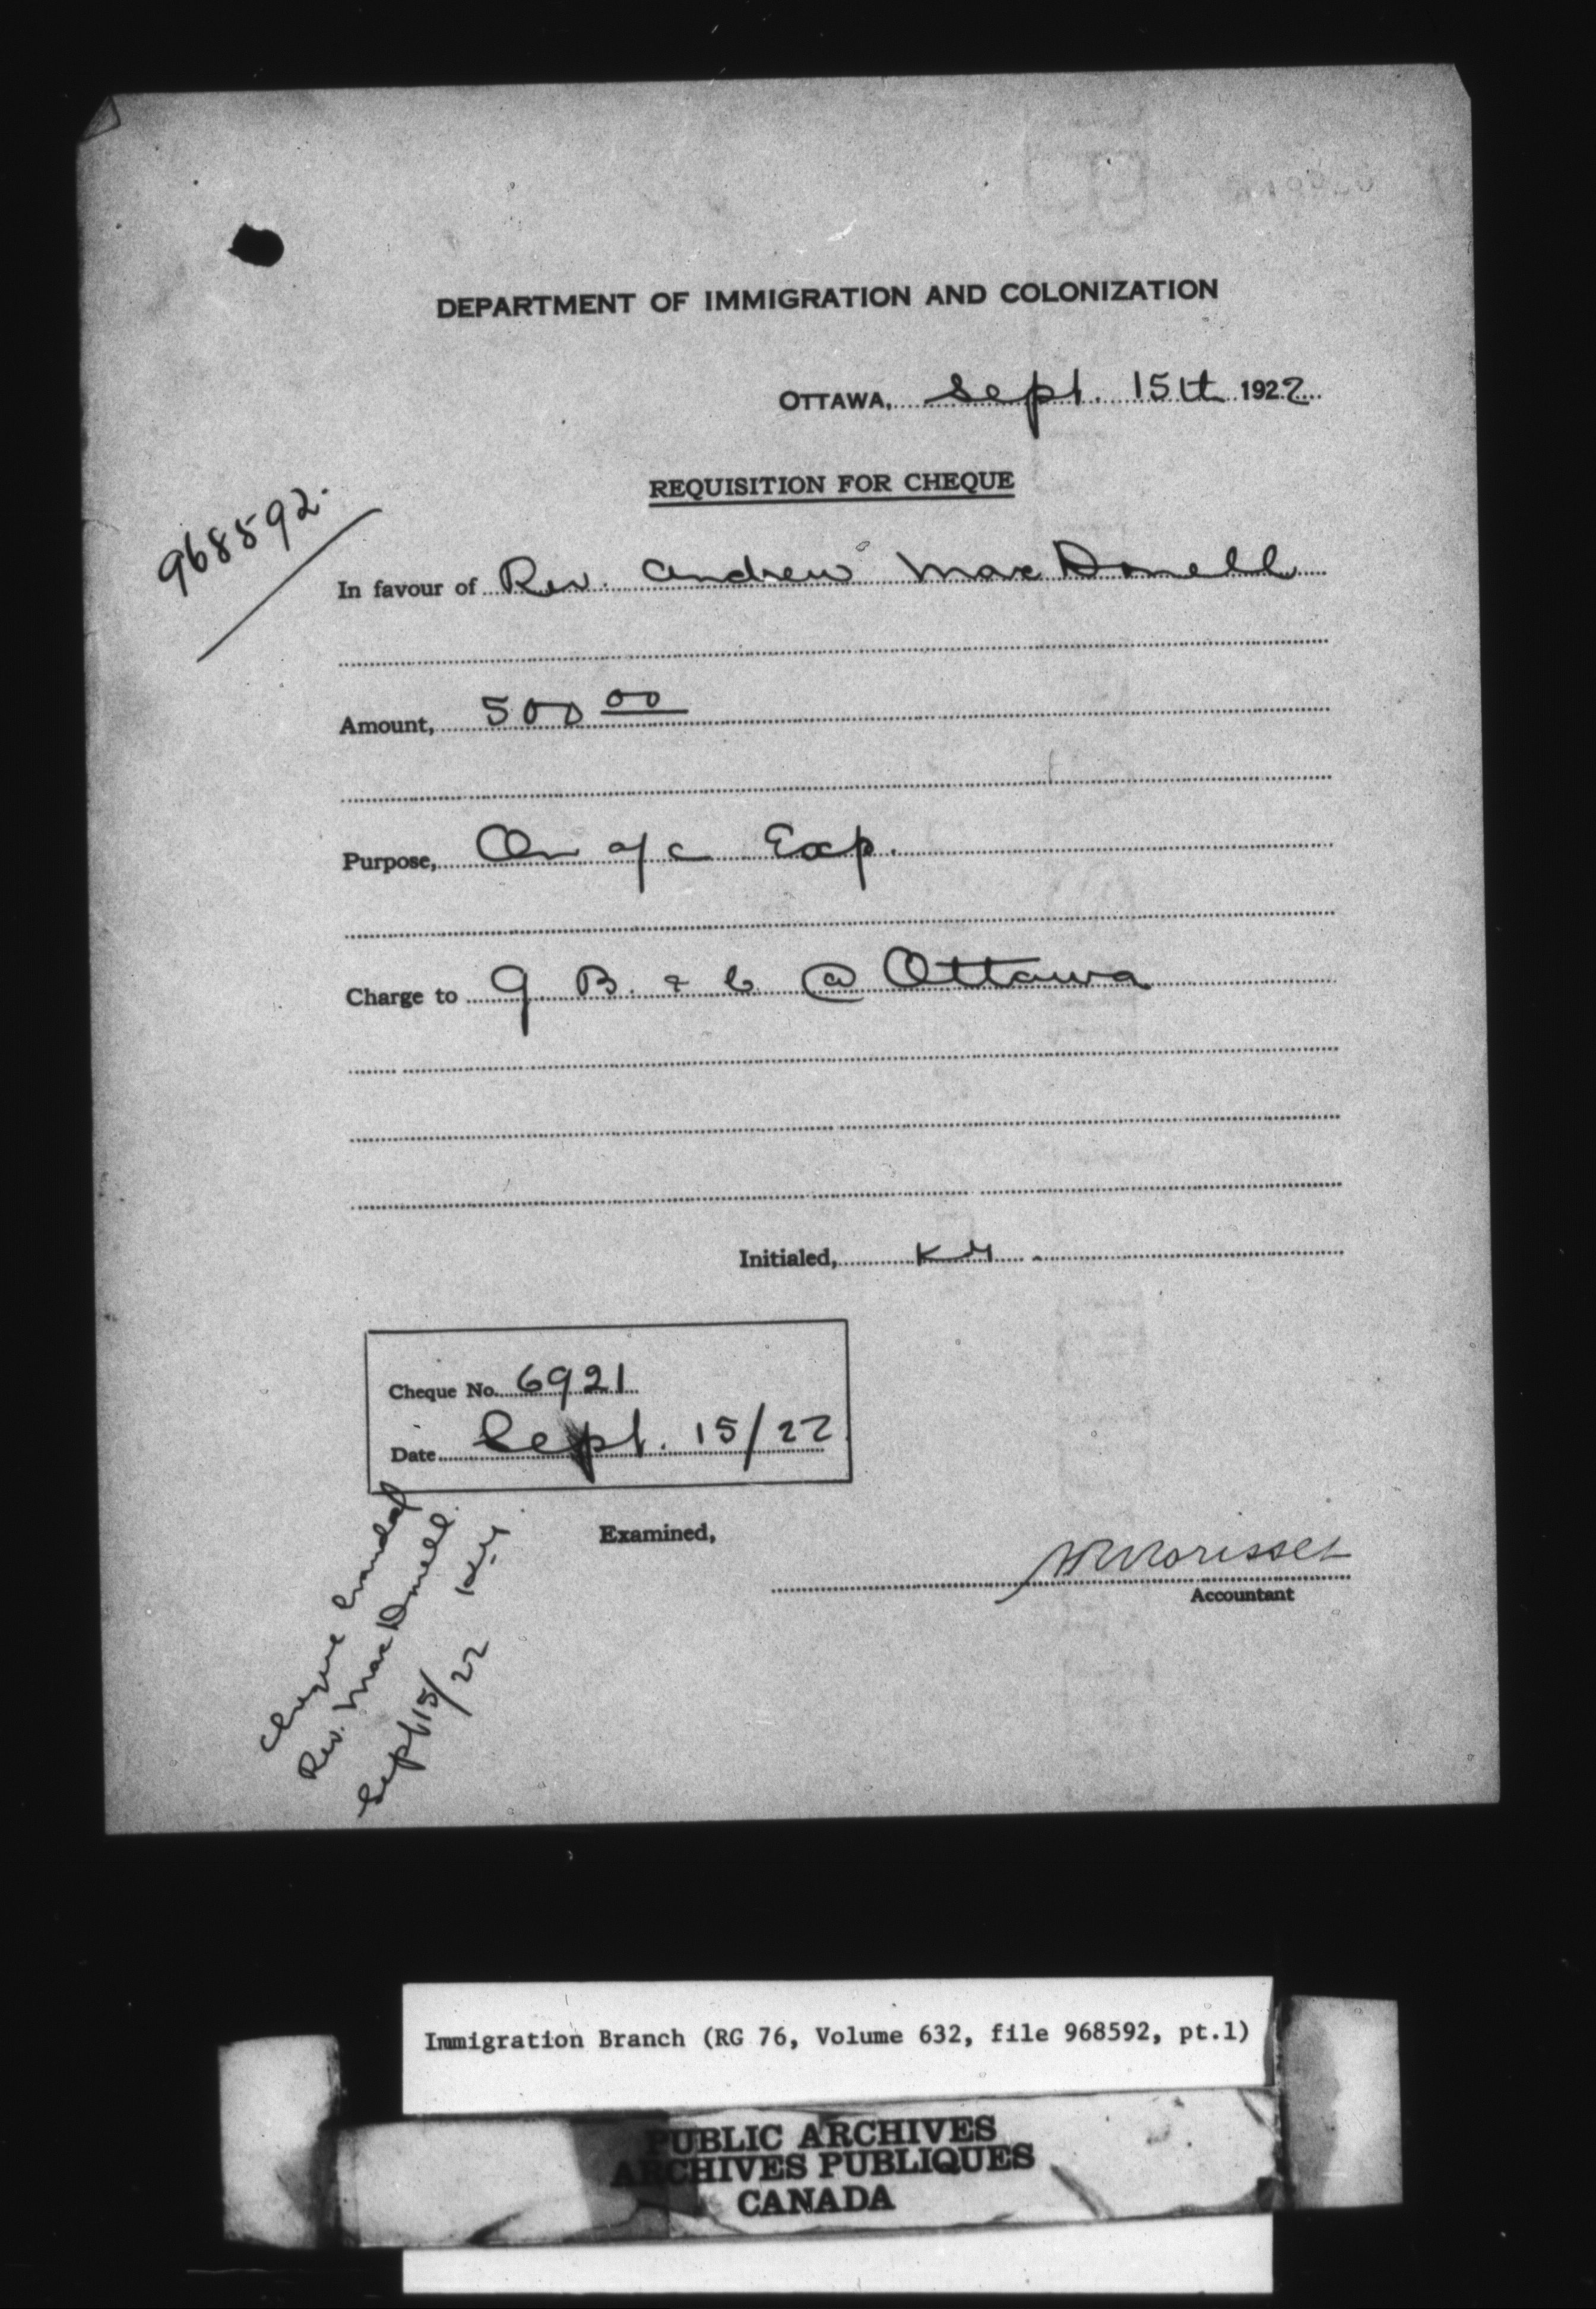 DEPARTMENT OF IMMIGRATION AND COLONIZATION
OTTAWA, Sept. 15th 1922
REQUISITION FOR CHEQUE
968592.
In favour of Rev. Andrew MacDonell
Amount, 500 00
Purpose, On a/c Exp.
Charge to G B. & C @ Ottawa
Initialed, KM
Cheque No. 6921
Date Sept. 15/22
Examined,
Morisset
Accountant
Cheque handed
Rev. MacDonell.
Sept 15/22 KM
Immigration Branch (RG 76, Volume 632, file 968592, pt.1)
PUBLIC ARCHIVES
ARCHIVES PUBLIQUES
CANADA